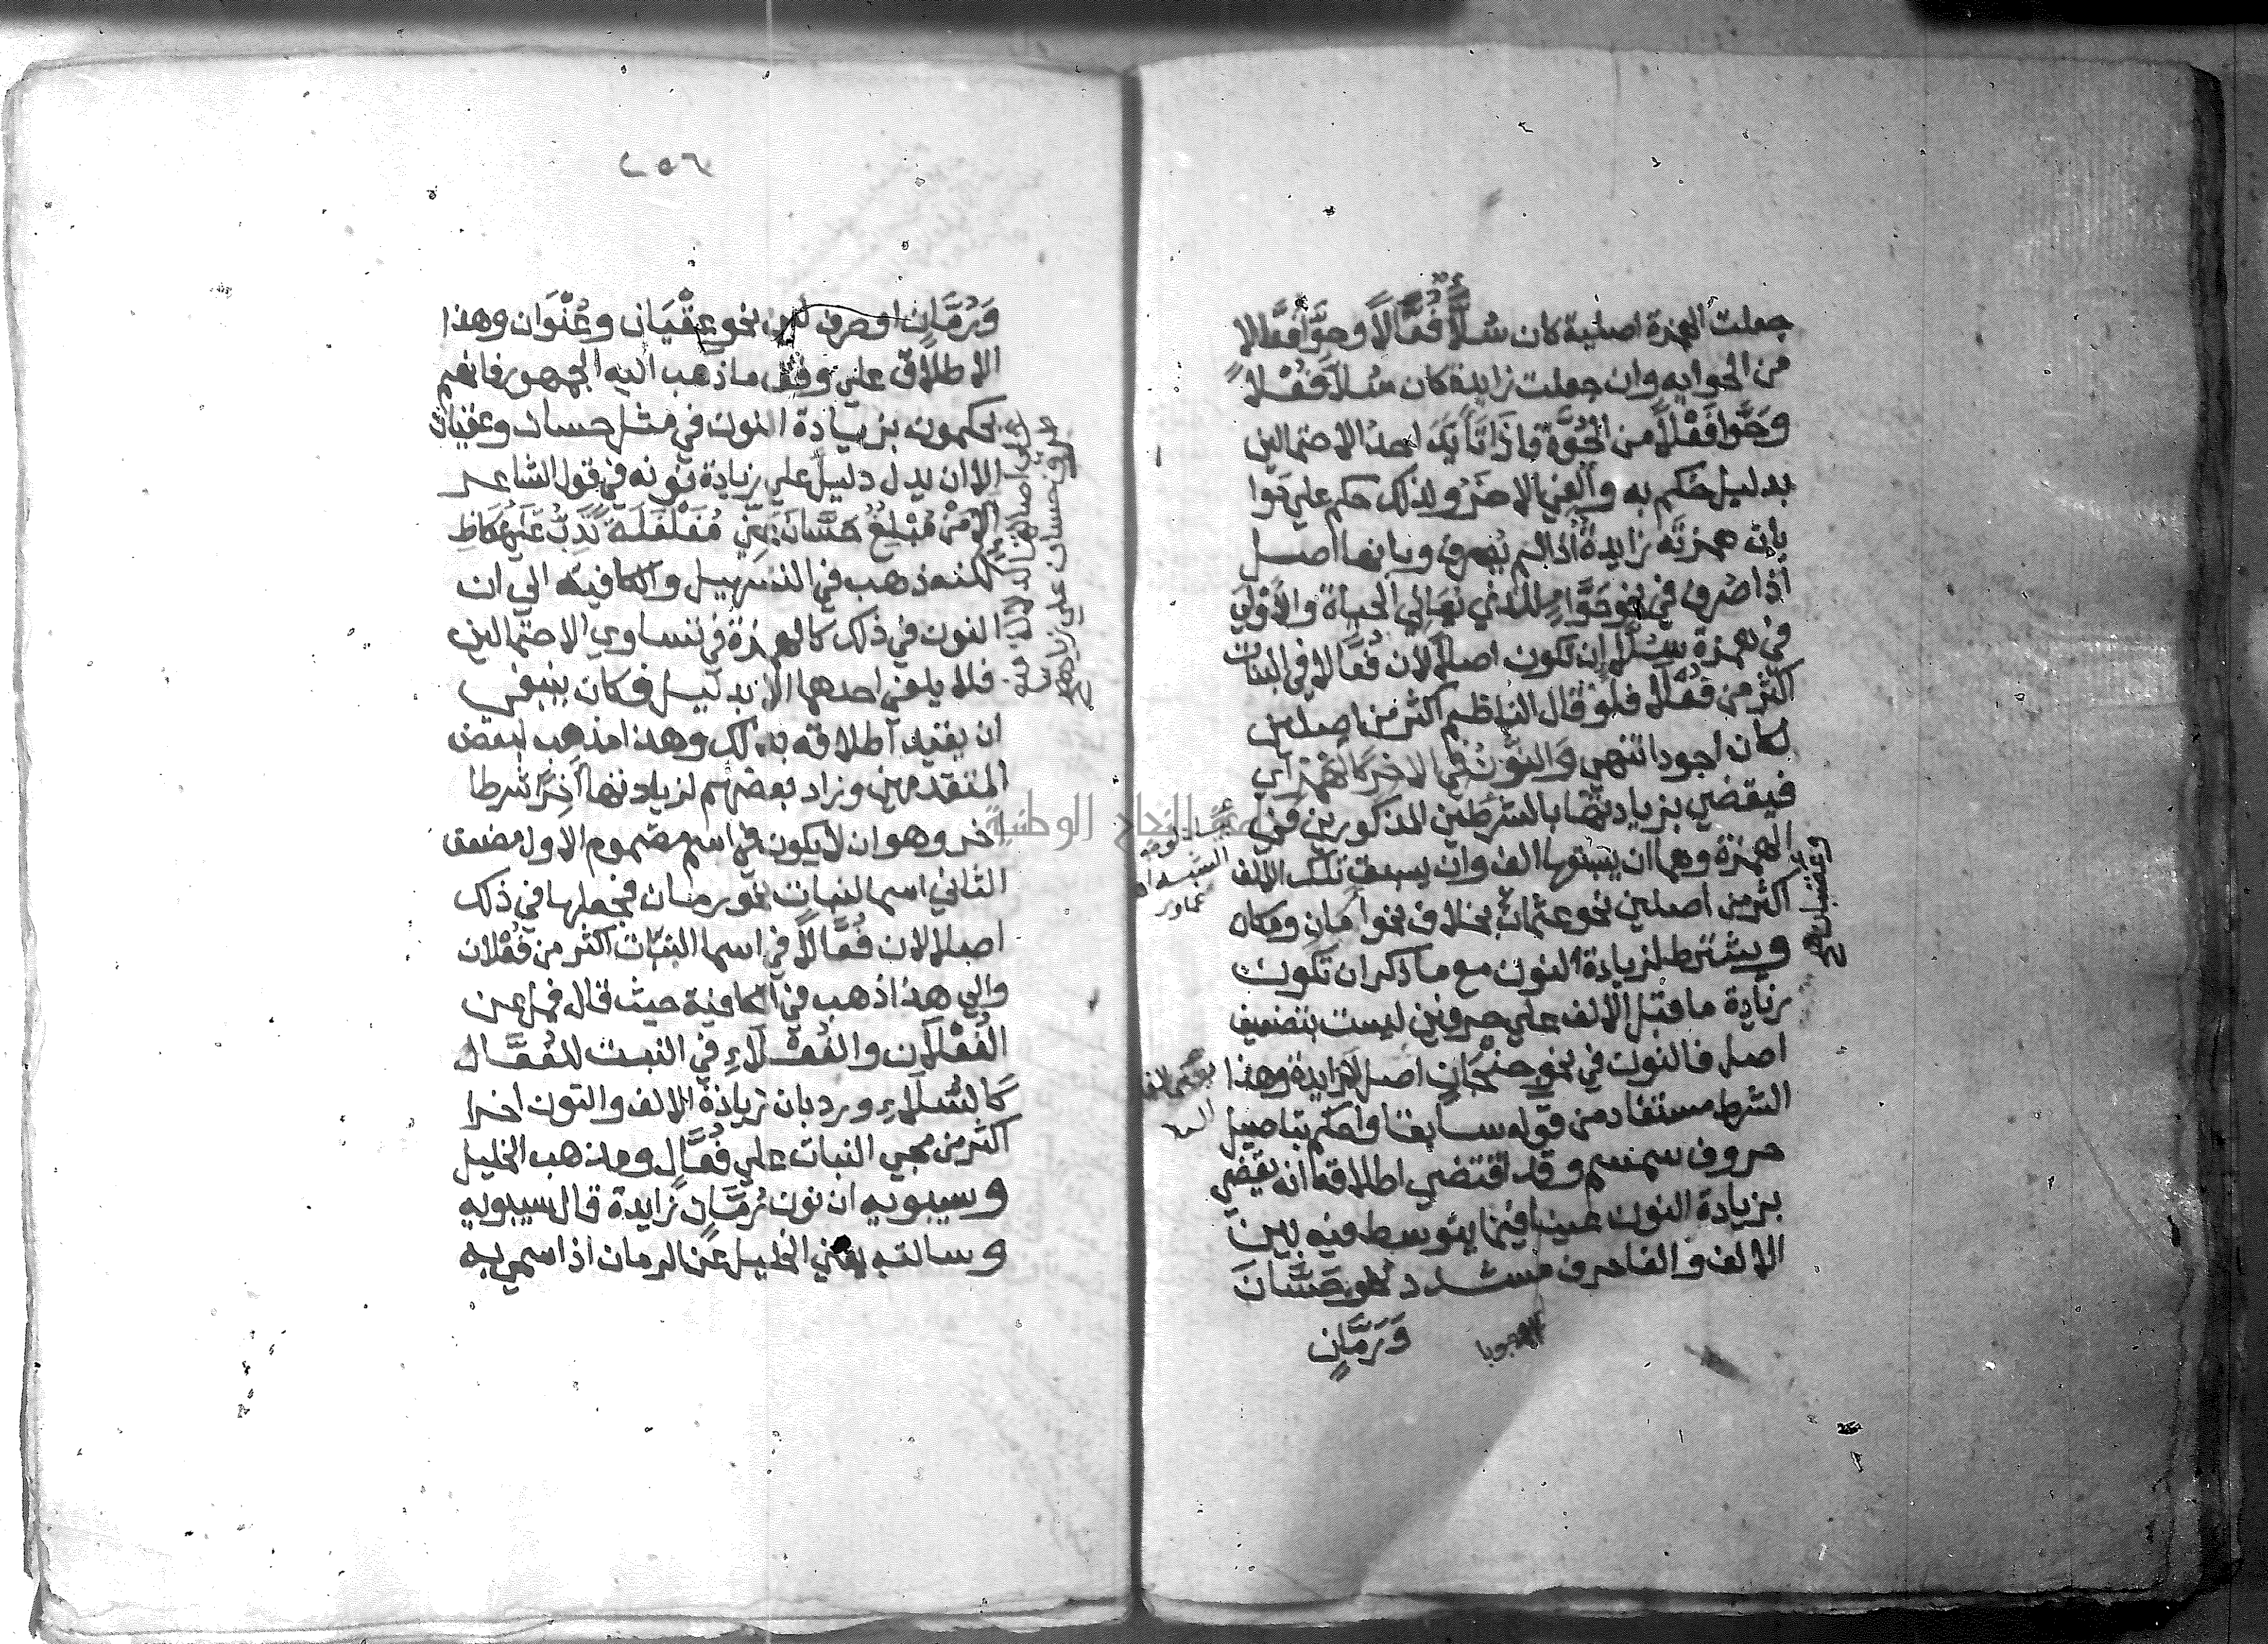 جعلت الهمزة اصلية كان سُلَّاءٌ فُعَّالاً وحوَّا فَعَّالا
من الحوايه وان جعلت زايدة كان سُلَّا فُعْلاً
وحَوَّا فَعْلاً من الحُوَّة فاذا تأيَّد احدُ الاحتمالين
بدليل حُكم به وأُلغي الاخَرُ ولذلك حكم على حَوا
بان همزته زايدة اذا لم يُصرف وبانها اصل
اذا صُرف في نحو حَوَّاءٍ للذي يُعاني الحياة والأَوْلى
في همزة سُلَّاءٍ ان تكون اصلاً لان فُعَّالا في النبات
اكثر من فُعْلاءَ فلو قال الناظم اكثر من اصلين
لكان اجود انتهى والنُّونُ في الاخِرِ كالهَمْزِ اي
فيقضي بزيادتها بالشرطين المذكورين في
الهمزة وهما ان يسبقها الف وان يسبق تلك الالف
اكثر من اصلين نحو عثمان بخلاف نحو امان ومكان
ويشترط لزيادة النون مع ما ذكر ان تكون
زيادة ما قبل الالف على حرفين ليست بتضعيف
اصل فالنون في نحو جنْجَانٍ اصل لا زايدة وهذا
الشرط مستفاد من قوله سابقا واحكم بتاصيل
حروف سمسم وقد اقتضى اطلاقه انه يقضي
بزيادة النون عينا فيما يتوسط فيه بين
الالف والفا حرف مشدد نحو حَسَّانَ
وَرُمَّانٍ
٢٥٦
وَرُمَّانٍ او حرف لين نحو عِقْيَان وعُنْوَان وهذا
الاطلاق على وفق ما ذهب اليه الجمهور فانهم
يحكمون بزيادة النون في مثل حسان وعقيان
الا ان يدل دليل على زيادة نونه في قول الشاعر
الا مَنْ مُبْلِغٌ حَسَّانَ عَنِّي مُغَلْغَلَةً تَدِبُّ عَلَى عُكَاظِ
لكنه ذهب في التسهيل والكافية الى ان
النون في ذلك كالهمزة في تساوي الاحتمالين
فلا يلغى احدهما الا بدليل فكان ينبغي
ان يقيد اطلاقه بذلك وهذا مذهب لبعض
المتقدمين وزاد بعضهم لزيادتها آخِرًا شرطا
اخر وهو ان لا يكون في اسم مضموم الاول مضعف
الثاني اسما لنبات نحو رمان فجعلها في ذلك
اصلا لان فُعَّالاً في اسما النبات اكثر من فُعْلان
والى هذا ذهب في الكافية حيث قال فمل عن
الفُعْلَان والفُعْلَاءِ في النبت للفُعَّال
كالسُّلَّاءِ ورد بان زيادة الالف والنون اخرا
اكثر من مجي النبات على فُعَّالٍ ومذهب الخليل
وسيبويه ان نون رُمَّانٍ زايدة قال سيبويه
وسالته يعني الخليل عن الرمان اذا سمي به